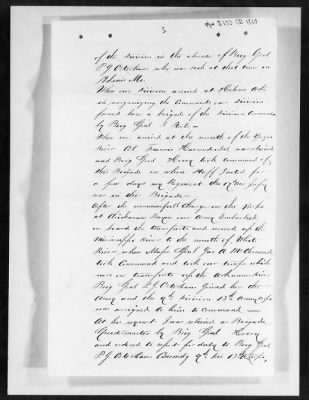 of the Division in the absence of Brig Genl
P. J. Osterhaus who was sick at that time in
Mo.
When our Division arrived at Helena Ark
in reorganizing the Command, our Division
formed here a brigade of the Division Commanded
by Brig Genl
When we arrived at the mouth of the Yazoo
River Col Francis Hassendeubel was relieved
and Brig Genl Hovey took command of
this Brigade on whose Staff I acted for
a few days my Regiment the 17th Mo Infty
was in this Brigade
After the unsuccessfull Charge on the Works
at Chickasaw Bayou our Army Embarked
on board the transports and moved up the
Mississippi River to the mouth of White
River when Major Genl Jno A McClernand
took Command and took our troops which
were on transports up the Arkansas River
Brig Genl P. J. Osterhaus joined here the
Army and the 9th Division 13th Army Corps
was assigned to him to command
At his request I was relieved as Brigade
Quartermaster by Brig Genl Hovey
and ordered to report for duty to Brig Genl
P. J. Osterhaus Comndg 9th Div 13th Corps,